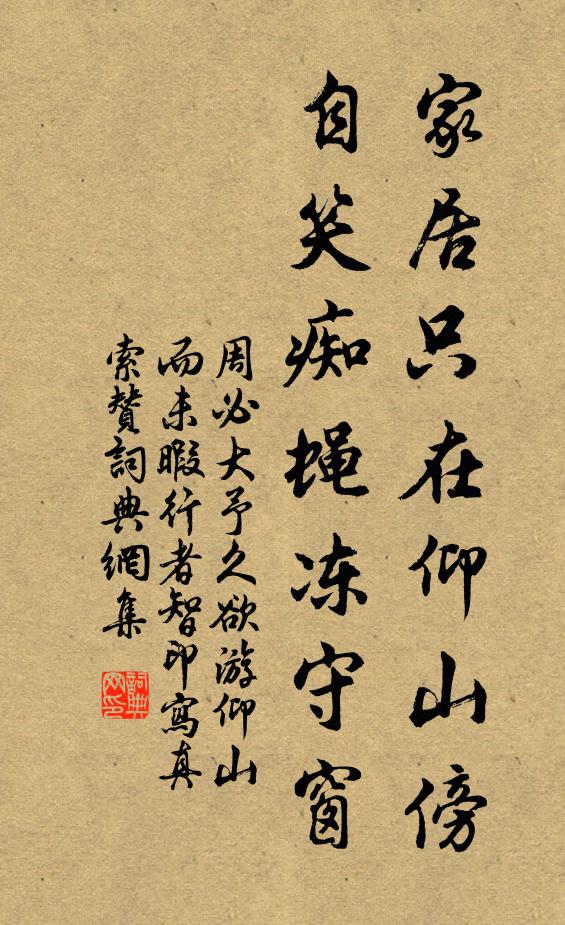 家居只在仰山傍
自笑痴蝇冻守窗
周必大予久欲游仰山
而未暇行者智印寫真
索贊詞典網集
詞典網印